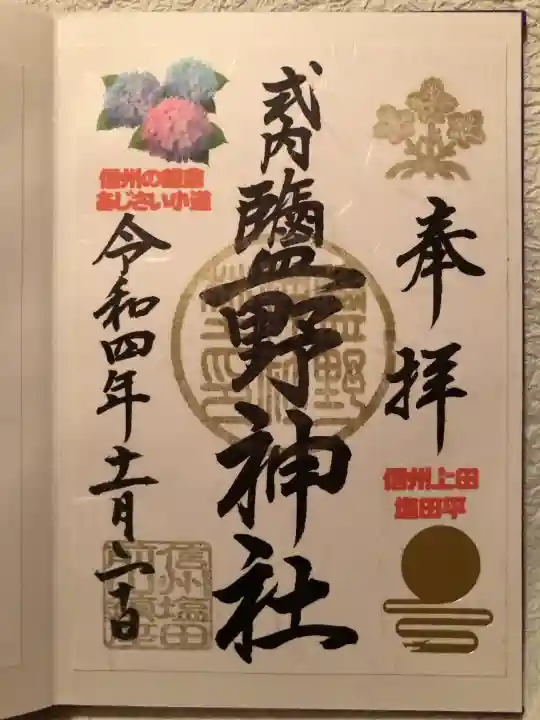 奉拝
信州上田
塩田平
式内
鹽野神社
信州の鎌倉
あじさい小道
令和四年十一月二十日